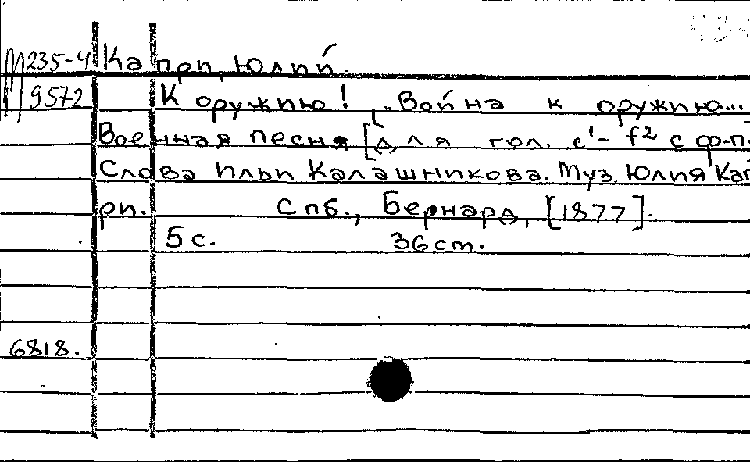 М 235-4 Капри, Юлий.
9572 К оружию! „Война к оружию...
Военная песня [для гол. c¹- f² с ф-п.
Слова Ильи Калашникова. Муз. Юлия Кап
ри. Спб., Бернард, [1877].
5 с. 36 см.
6818.